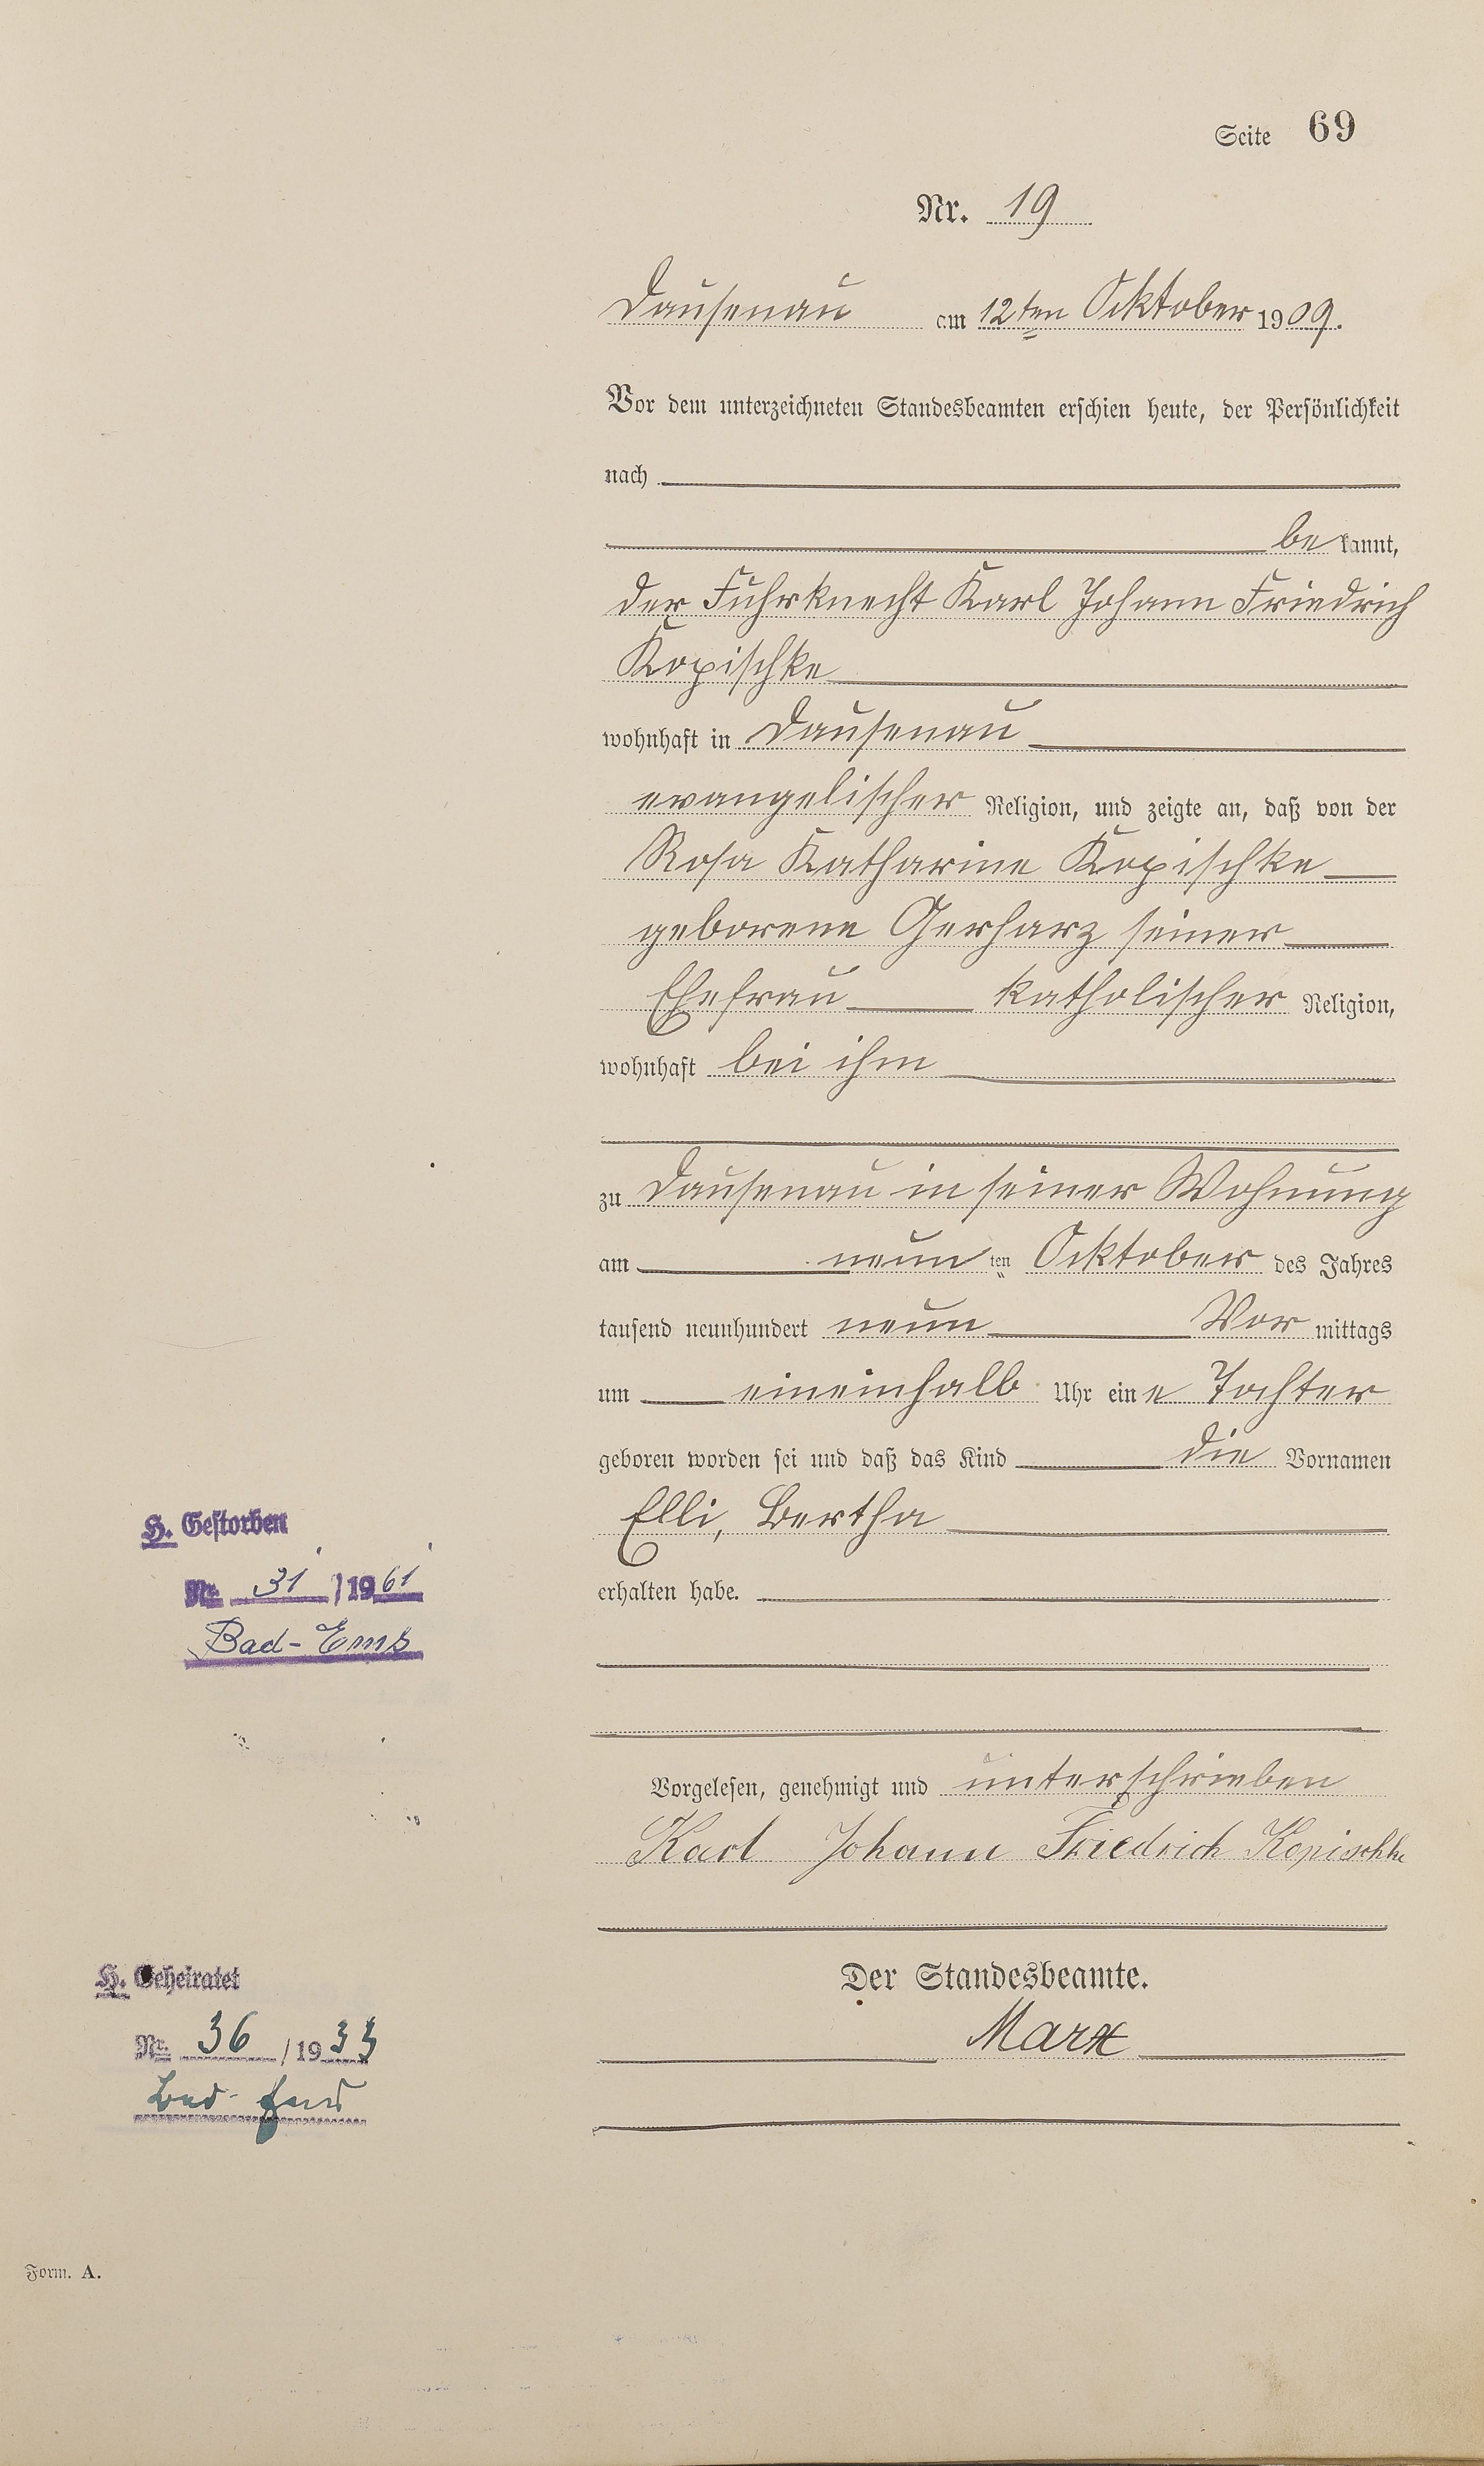 Seite 69
Nr. 19
Dausenau am 12ten Ocktober 1909.
Vor dem unterzeichneten Standesbeamten erschien heute, der Persönlichkeit
nach
bekannt,
der Fuhrknecht Karl Johann Friedrich
Kopischke
wohnhaft in Dausenau
evangelischer Religion, und zeigte an, daß von der
Rosa Katharine Kopischke
geborene Gerharz seiner
Ehefrau katholischer Religion,
wohnhaft bei ihm
zu Dausenau in seiner Wohnung
am neunten Ocktober des Jahres
tausend neunhundert neun Vormittags
um eineinhalb Uhr eine Tochter
geboren worden sei und daß das Kind die Vornamen
Elli, Bertha
erhalten habe.
H. Gestorben
Nr. 31 / 1961
Bad-Ems
Vorgelesen, genehmigt und unterschrieben
Karl Johann Friedrich Kopischke
Der Standesbeamte.
Marx
H. Geheiratet
Nr. 36 / 1933
Bad-Ems
Form. A.